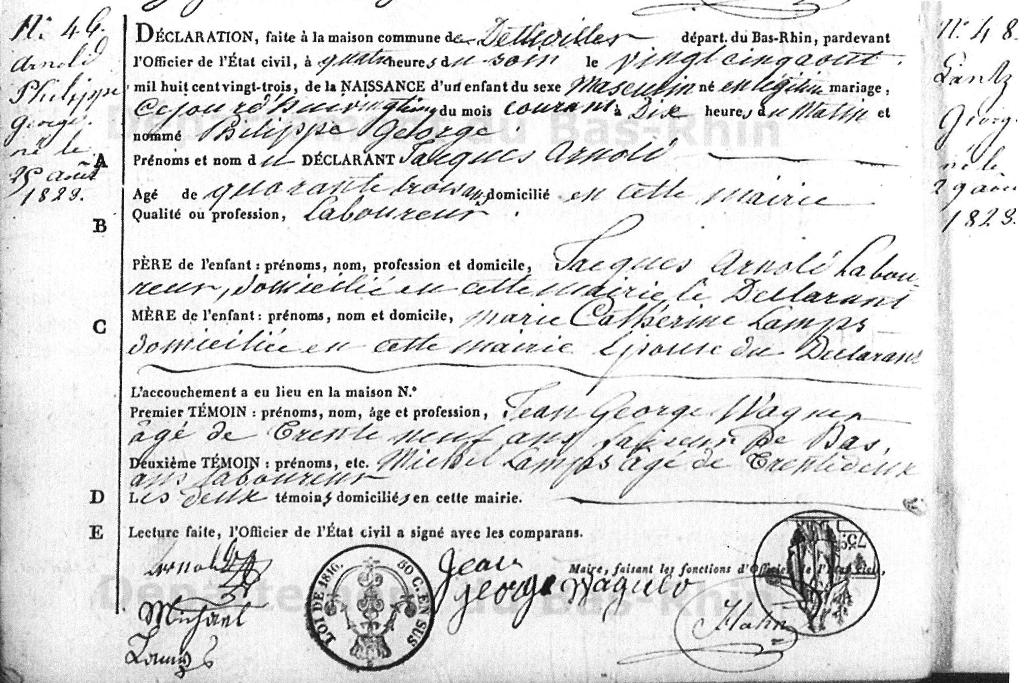 N.° 46.
Arnold
Philippe
George.
né le
25 août
1823.
DÉCLARATION, faite à la maison commune de Dettwiller départ. du Bas-Rhin, pardevant
l'Officier de l'État civil, à quatre heures du soir le vingt cinq aout
mil huit cent vingt-trois, de la NAISSANCE d'un enfant du sexe Masculin né en légitime mariage,
ce jourd'hui vingt cinq du mois courant à Dix heures du Matin et
nommé Philippe George.
A Prénoms et nom du DÉCLARANT Jacques Arnold
Agé de quarante trois ans, domicilié en cette mairie
B Qualité ou profession, Laboureur.
PÈRE de l'enfant : prénoms, nom, profession et domicile, Jacques Arnold Labou-
reur, domicilié en cette mairie le Declarant
C MÈRE de l'enfant : prénoms, nom et domicile, Marie Catherine Lamps
domiciliée en cette mairie épouse du Declarant
L'accouchement a eu lieu en la maison N.°
Premier TÉMOIN : prénoms, nom, âge et profession, Jean George Wagner
âgé de trente neuf ans faiseur De Bas,
Deuxième TÉMOIN : prénoms, etc. Michel Lamps âgé de trente deux
ans laboureur
D Les deux témoins domiciliés en cette mairie.
E Lecture faite, l'Officier de l'État civil a signé avec les comparans.
Maire, faisant les fonctions d'Officier de l'État civil,
Arnold
Jean
George Wagner
Hahn
Michael
LOI DE 1816. 50 C. EN SUS
Département du Bas-Rhin
Département du Bas-Rhin
N.° 48
Lantz
George
né le
29 aou
1823.